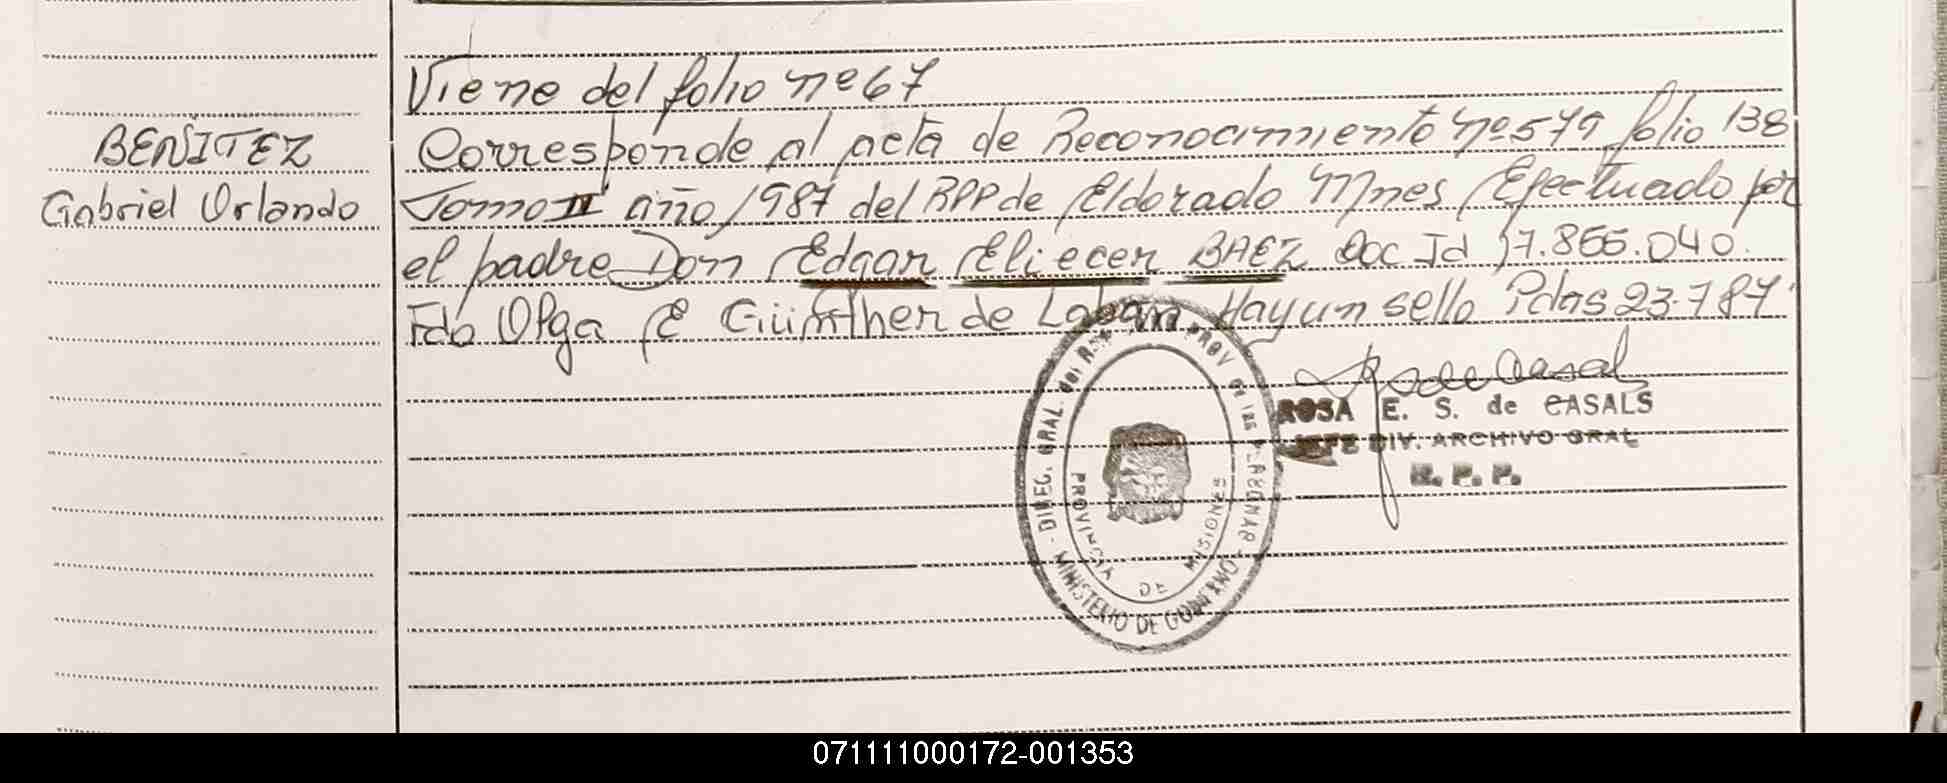 Viene del folio nº 67
BENITEZ
Corresponde al acta de Reconocimiento nº 579 folio 138
Gabriel Orlando
Tomo II año 1987 del RPP de Eldorado Mnes Efectuado por
el padre Don Edgar Eliecer BAEZ Doc Id 17.855.040.
Fdo Olga E Günther de Laban. Hay un sello Pdas 23-7-87
ROSA E. S. de CASALS
JEFE DIV. ARCHIVO GRAL
R. P. P.
DIREC. GRAL. del PROV de las PERSONAS
MINISTERIO DE GOBIERNO
PROVINCIA DE MISIONES
071111000172-001353